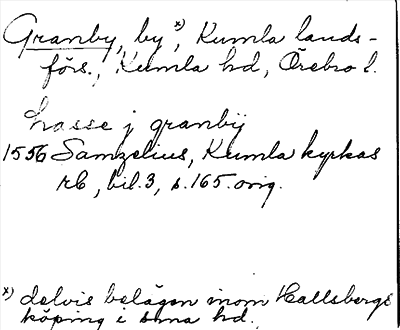 Granby, by x), Kumla lands-
förs., Kumla hd, Örebro l.
hasse j granbÿ
1556 Samzelius, Kumla kyrkas
rb, bil. 3, s. 165. orig.
x) delvis belägen inom Hallsbergs
köping i sma hd.